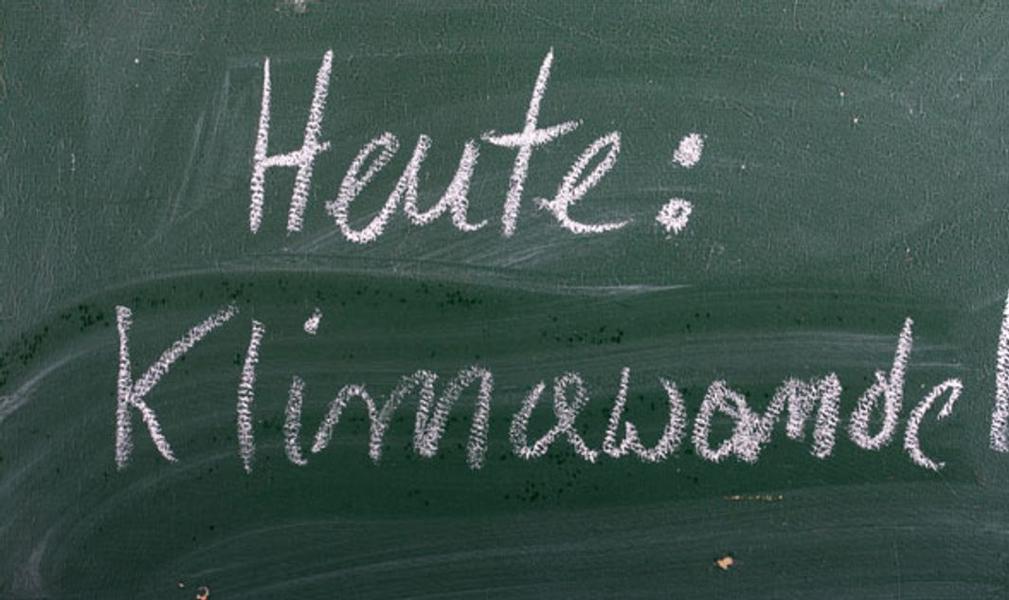 Heute:
Klimawandel